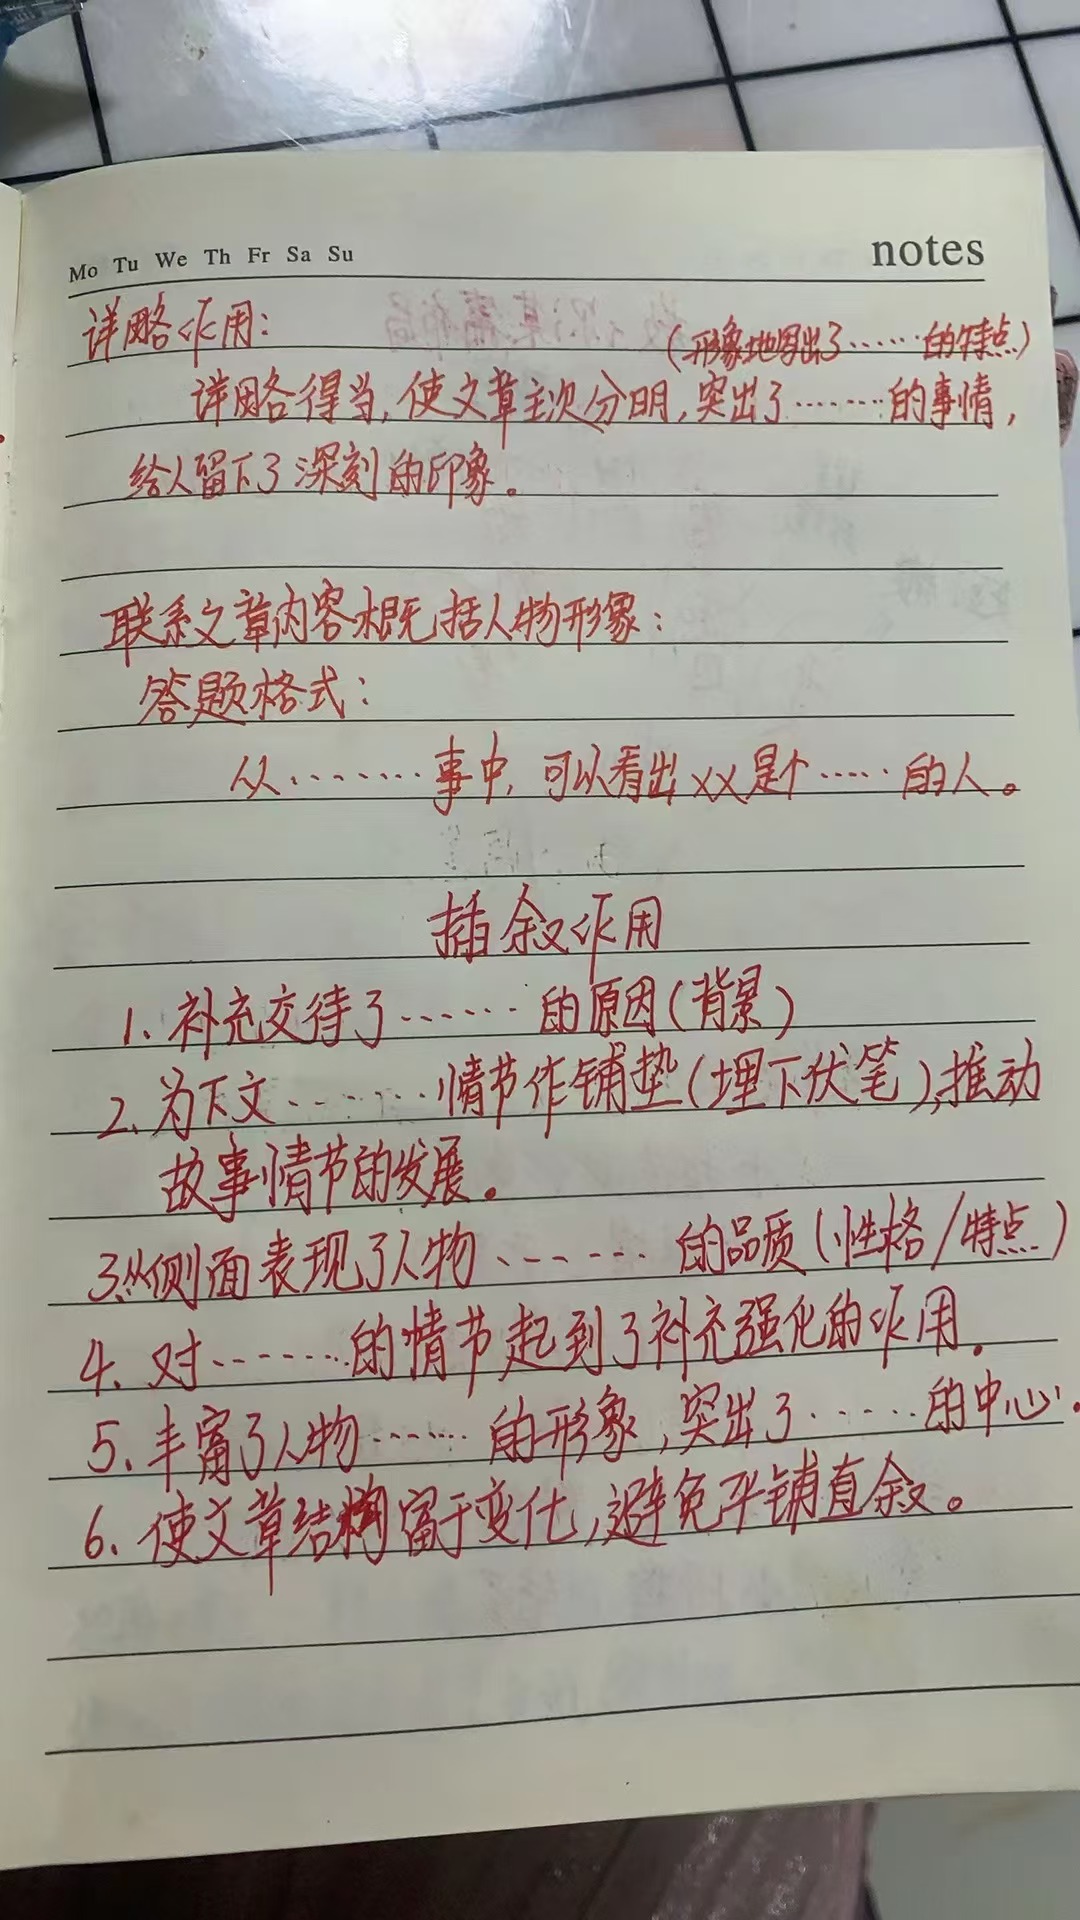 Mo Tu We Th Fr Sa Su
notes
详略作用:
(形象地写出了……的特点)
详略得当,使文章主次分明,突出了……的事情,
给人留下了深刻的印象。
联系文章内容概括人物形象:
答题格式:
从……事中,可以看出xx是个……的人。
插叙作用
1、补充交待了……的原因(背景)
2、为下文……情节作铺垫(埋下伏笔),推动
故事情节的发展。
3、从侧面表现了人物……的品质(性格/特点)
4、对……的情节起到了补充强化的作用。
5、丰富了人物……的形象,突出了……的中心。
6、使文章结构富于变化,避免平铺直叙。